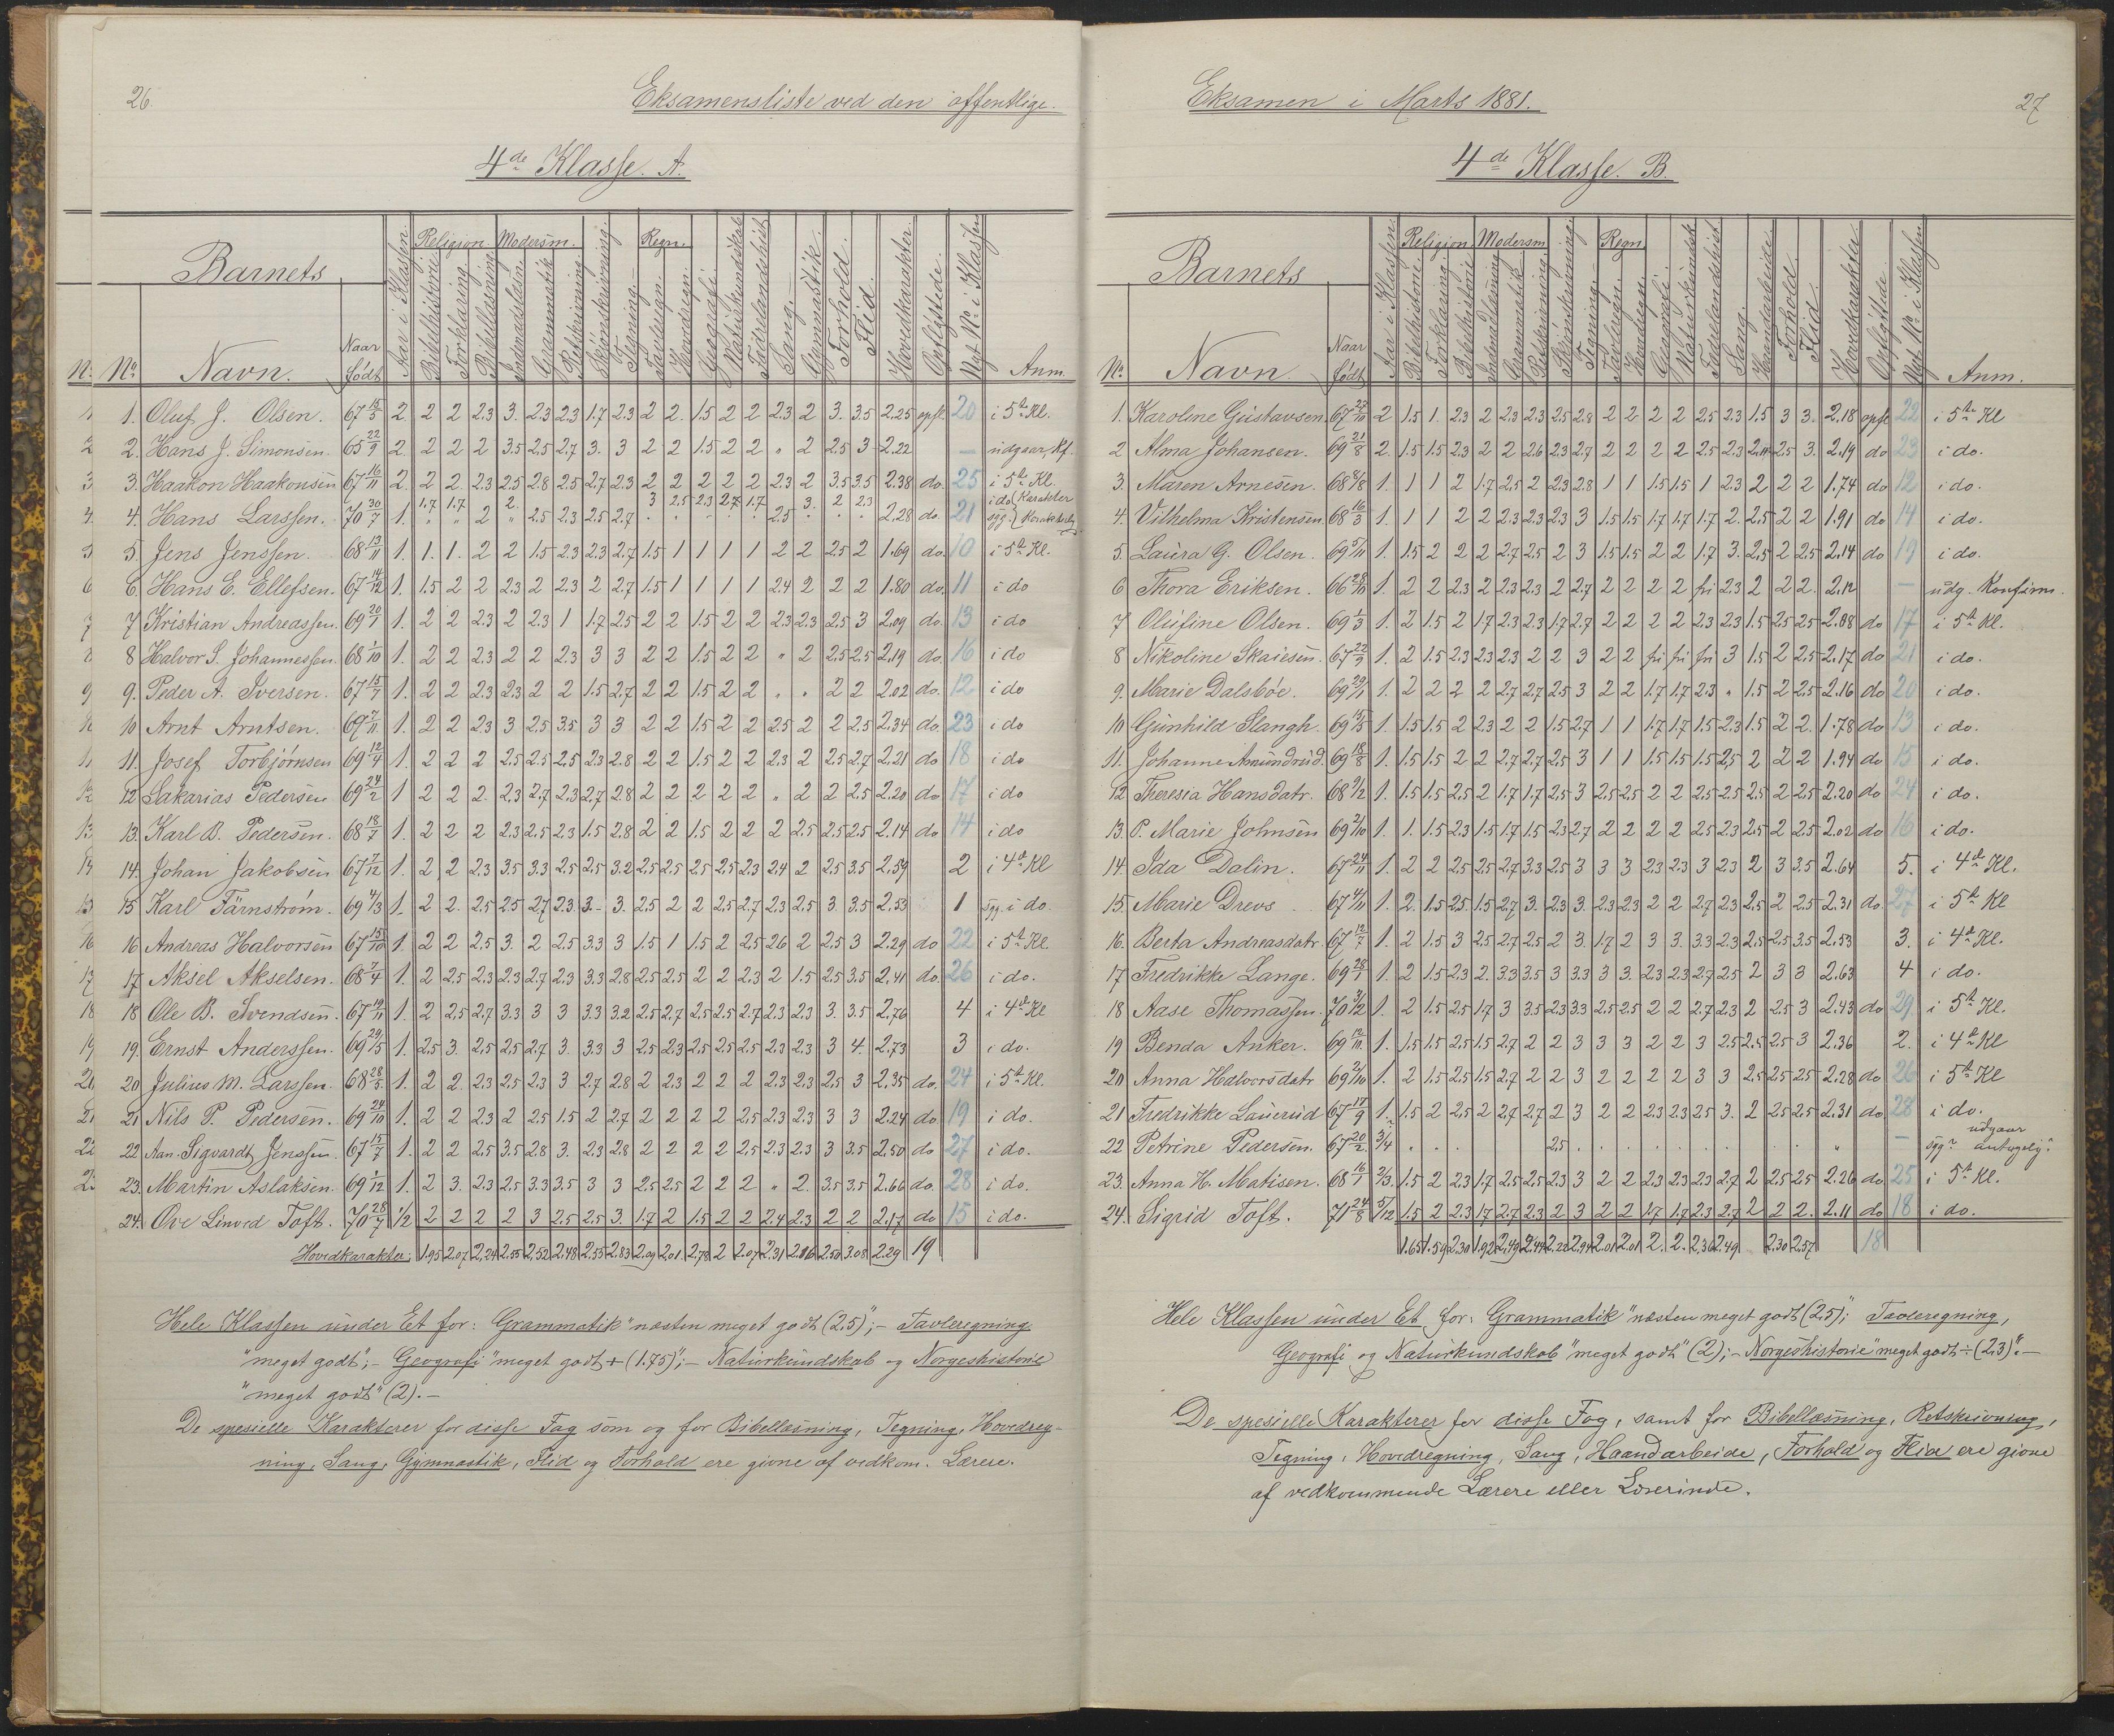 26.
Eksamensliste ved den offentlige.
4de Klasse. A.
Barnets
Religion Modersm. Regn.
No. Navn. Naar født Aar i Klassen. Bibelhistorie Forklaring. Bibellæsning Indenadslæsn. Grammatik Retskrivning. Skjønskrivning. Tegning. Tavleregn. Hovedregn. Geografi. Naturkundskab Fædrelandshist. Sang. Gymnastik. Forhold. Flid. Hovedkarakter. Opflyttede. Nyt No. i Klassen Anm.
1. Oluf J. Olsen. 67 15/5 2 2 2 2.3 3. 2.3 2.3 1.7 2.3 2 2. 1.5 2 2 2.3 2 3. 3.5 2.25 opfl. 20 i 5te Kl.
2. Hans J. Simonsen. 65 22/9 2. 2 2 2 3.5 2.5 2.7 3. 3 2 2 1.5 2 2 " 2 2.5 3 2.22 — udgaar, Kf.
3. Haakon Haakonsen 67 16/11 2 2 2 2.3 2.5 2.8 2.5 2.7 2.3 2 2 2 2 2 2.3 2 3.5 3.5 2.38 do. 25 i 5te Kl.
4. Hans Larssen. 70 30/7 1. 1.7 1.7 2 2. 2.5 2.3 2.5 2.7 3 2.5 2.3 2.7 1.7 2.5 3. 2 2.3 2.28 do. 21 i do
5. Jens Jenssen. 68 13/11 1. 1. 1. 2 2 1.5 2.3 2.3 2.7 1.5 1 1 1 1 2 2 2.5 2 1.69 do. 10 i 5te Kl.
6. Hans E. Ellefsen. 67 14/12 1. 1.5 2 2 2.3 2 2.3 2 2.7 1.5 1 1 1 1 2.4 2 2 2 1.80 do. 11 i do
7 Kristian Andreassen. 69 20/1 1. 2 2 2.3 2 2.3 1 1.7 2.5 2 2 1.5 2 2 2.3 2.3 2.5 3 2.09 do. 13 i do
8 Halvor S. Johannessen. 68 1/10 1. 2 2 2.3 2 2 2.3 3 3 2 2 1.5 2 2 " 2 2.5 2.5 2.19 do. 16 i do
9. Peder A. Iversen. 67 15/7 1. 2 2 2.3 2.3 2 2 1.5 2.7 2 2 1.5 2 2 " " 2 2 2.02 do. 12 i do
10 Arnt Arntsen. 69 7/11 1. 2 2 2.3 3 2.5 3.5 3 3 2 2 1.5 2 2 2.5 2 2 2.5 2.34 do. 23 i do
11. Josef Torbjørnsen 69 12/4 1. 2 2 2 2.5 2.5 2.5 2.3 2.8 2 2 1.5 2 2 2.3 2 2.5 2.7 2.21 do 18 i do
12 Sakarias Pedersen 69 24/2 1 2 2 2. 2.3 2.7 2.3 2.7 2.8 2 2 2 2 2 " 2 2 2.5 2.20 do 17 i do
13. Karl B. Pedersen. 68 18/7 1. 2 2 2 2.3 2.5 2.3 1.5 2.8 2 2 1.5 2 2 2 2.5 2.5 2.5 2.14 do 14 i do
14. Johan Jakobsen 67 7/12 1. 2 2 2.3 3.5 3.3 2.5 2.5 3.2 2.5 2.5 2.5 2.5 2.3 2.4 2 2.5 3.5 2.59 2 i 4de Kl
15 Karl Färnstrøm. 69 4/3 1. 2 2. 2.5 2.5 2.7 2.3 3. 3. 2.5 2 2 2.5 2.7 2.3 2.5 3. 3.5 2.53 1 syg. i do.
16 Andreas Halvorsen 67 15/10 1. 2 2 2.5 3. 2 2.5 3.3 3 1.5 1 1.5 2 2.5 2.6 2 2.5 3 2.29 do 22 i 5te Kl.
17 Aksel Akselsen. 68 7/4 1. 2 2.5 2.3 2.3 2.7 2.3 3.3 2.8 2.5 2.5 2 2 2.3 2 1.5 2.5 3.5 2.41 do. 26 i do.
18 Ole B. Svendsen. 67 19/11 1. 2 2.5 2.7 3.3 3 3 3.3 3.2 2.5 2.7 2.5 2.5 2.7 2.3 2.3 3. 3.5 2.76 4 i 4de Kl
19. Ernst Anderssen. 69 29/5 1. 2.5 3. 2.5 2.5 2.7 3. 3.3 3 2.5 2.3 2.5 2.5 2.5 2.3 2.3 3 4. 2.73 3 i do.
20 Julius M. Larssen. 68 28/5 1. 2 2 2.3 2.5 2.3 3 2.7 2.8 2 2.3 2 2 2 2.3 2.3 2.5 3 2.35 do. 24 i 5te Kl.
21 Nils P. Pedersen. 69 24/10 1. 2 2 2.3 2 2.5 1.5 2 2.7 2 2 2 2 2.5 2.3 2.3 3 3 2.24 do. 19 i do.
22 Aan. Sigvardt Jenssen. 67 15/7 1. 2 2 2.5 3.5 2.8 3. 2.3 2.8 2 2 2 2 2.5 2.3 2.3 3 3.5 2.50 do 27 i do.
23. Martin Aslaksen. 69 1/12 1. 2 3. 2.3 2.5 3.3 3.5 3 3 2.5 2.5 2 2 2 " 2. 3.5 3.5 2.66 do. 28 i do.
24. Ove Linved Toft. 70 28/7 1/2 2 2 2 2 3 2.5 2.5 3. 1.7 2 1.5 2 2 2.4 2.3 2 2 2.17 do 15 i do.
Hovedkarakter: 1.95 2.07 2.24 2.55 2.52 2.48 2.55 2.83 2.09 2.01 2.78 2 2.07 2.31 2.16 2.50 3.08 2.29 19
Hele Klassen under Et for: Grammatik "næsten meget godt (2,5)"; – Tavleregning
"meget godt"; – Geografi "meget godt + (1.75)"; – Naturkundskab og Norgeshistorie
"meget godt" (2). –
De spesielle Karakterer for disse Fag som og for Bibellæsning, Tegning, Hovedreg-
ning, Sang, Gymnastik, Flid og Forhold ere givne af vedkom. Lærere.
Eksamen i Marts 1881.
27
4de Klasse. B.
Barnets
Religion Modersm Regn
No. Navn. Naar født Aar i Klassen Bibelhistorie Forklaring. Bibelhistorie Indenadslæsning Grammatik. Retskrivning. Skjønskrivning. Tegning. Tavleregn. Hovedregn. Geografi. Naturkundsk Fædrelandshist. Sang. Haandarbeide. Forhold. Flid. Hovedkarakter Opflyttede. Nyt No. i Klassen Anm.
1. Karoline Gustavsen. 67 23/10 2 1.5 1. 2.3 2 2.3 2.3 2.5 2.8 2 2 2 2 2.5 2.3 1.5 3 3. 2.18 opfl 22 i 5te Kl
2 Alma Johansen. 69 21/8 2. 1.5 1.5 2.3 2 2 2.6 2.3 2.7 2 2 2 2 2.5 2.3 2.5 3. 2.19 do 23 i do.
3. Maren Arnesen. 68 8/8 1. 1 1 2 1.7 2.5 2 2.3 2.8 1 1 1.5 1.5 1 2.3 2 2 2 1.74 do 12 i do.
4. Vilhelma Kristensen. 68 16/3 1. 1 1 2 2 2.3 2.3 2.3 3 1.5 1.5 1.7 1.7 1.7 2. 2.5 2 2 1.91 do 14 i do.
5. Laura G. Olsen. 69 5/11 1. 1.5 2 2 2 2.7 2.5 2 3 1.5 1.5 2 2 1.7 3. 2.5 2 2.5 2.14 do 19 i do.
6 Thora Eriksen. 66 28/10 1. 2 2 2.3 2 2.3 2.3 2 2.7 2 2 2 2 fri 2.3 2 2 2. 2.12 — udg. Konfirm.
7 Olufine Olsen. 69 1/3 1. 2 1.5 2 1.7 2.3 2.3 1.7 2.7 2 2 2 2 2.3 2.3 1.5 2.5 2.5 2.08 do 17 i 5te Kl.
8 Nikoline Skaiesen. 67 22/9 1. 2 1.5 2.3 2.3 2.3 2 2 3 2 2 fri fri fri 3 1.5 2 2.5 2.17 do 21 i do.
9. Marie Dalsbøe. 69 29/11 1. 2 2 2 2 2.7 2.7 2.5 3 2 2 1.7 1.7 2.3 " 1.5 2 2.5 2.16 do 20 i do.
10 Gunhild Slangh. 69 15/5 1. 1.5 1.5 2 2.3 2 2 1.5 2.7 1 1 1.7 1.7 1.5 2.3 1.5 2 2. 1.78 do 13 i do.
11. Johanne Amundrud. 69 18/8 1. 1.5 1.5 2 2 2.7 2.7 2.5 3 1 1 1.5 1.5 1.5 2,5 2 2 2 1.94 do 15 i do.
12 Theresia Hansdatr. 68 9/12 1. 1.5 1.5 2.5 2 1.7 1.7 2.5 3 2.5 2.5 2 2 2.5 2.5 2.5 2 2.5 2.20 do 24 i do.
13. P. Marie Johnsen 69 2/10 1. 1. 1.5 2.3 1.5 1.7 1.5 2.3 2.7 2 2 2 2 2.5 2.3 2.5 2 2.5 2.02 do 16 i do.
14. Ida Dalin. 67 24/11 1. 2 2 2.5 2.5 2.7 3.3 2.5 3 3 3 2.3 2.3 3 2.3 2 3 3.5 2.64 5. i 4de Kl.
15. Marie Drevs 67 4/11 1. 2. 1.5 2.5 1.5 2.7 3. 2.3 3. 2.3 2.3 2 2 2.7 2.3 2.5 2 2.5 2.31 do. 27 i 5te Kl
16. Berta Andreasdatr. 67 12/7 1. 2 1.5 3 2.5 2.7 2.5 2 3. 1.7 2 3 3. 3.3 2.3 2.5 2.5 3.5 2.53 3. i 4de Kl.
17 Fredrikke Lange. 69 28/1 1. 2 1.5 2.3 2. 3.3 3.5 3 3.3 3 3. 2.3 2.3 2.7 2.5 2 3 3 2.63 4 i do.
18 Aase Thomassen. 70 3/12 1. 2 1.5 2.5 1.7 3 3.5 2.3 3.3 2.5 2.5 2 2 2.7 2.3 2 2.5 3 2.43 do 29. i 5te Kl.
19 Benda Anker. 69 12/11 1. 1.5 1.5 2.5 1.5 2.7 2 2 3 3 3 2 2 3 2.5 2.5 2.5 3 2.36 2. i 4de Kl
20 Anna Halvorsdatr 69 2/10 1. 2 1.5 2.5 1.5 2.7 2 2 3 2 2 2 2 3 3 2.5 2.5 2.5 2.28 do 26 i 5te Kl
21 Fredrikke Lauerud 67 17/9 1. 1.5 2 2.5 2 2.7 2.7 2 3 2 2 2.3 2.3 2.5 3. 2 2.5 2.5 2.31 do 28 i do.
22 Petrine Pedersen. 67 20/2 3/4 2,5 — udgaar
23. Anna H. Matisen. 68 16/1 2/3. 1.5 2 2.3 1.7 2.5 2.5 2.3 3 2 2 2.3 2.3 2.3 2.7 2 2.5 2.5 2.26 do 25 i 5te Kl.
24. Sigrid Toft. 71 24/8 5/12 1.5 2 2.3 1.7 2.7 2.3 2 3 2 2 1.7 1.7 2.3 2.7 2 2 2. 2.11 do 18 i do.
1.65 1.59 2.30 1.92 2.49 2.44 2.22 2.94 2.01 2.01 2. 2. 2.36 2.49 2.30 2.57 18
Hele Klassen under Et for: Grammatik "næsten meget godt (2,5)"; Tavleregning,
Geografi og Naturkundskab "meget godt" (2); – Norgeshistorie "meget godt ÷ (2,3)". –
De spesielle Karakterer for disse Fag, samt for Bibellæsning, Retskrivning,
Tegning, Hovedregning, Sang, Haandarbeide, Forhold og Flid ere givne
af vedkommende Lærere eller Lærerinde.